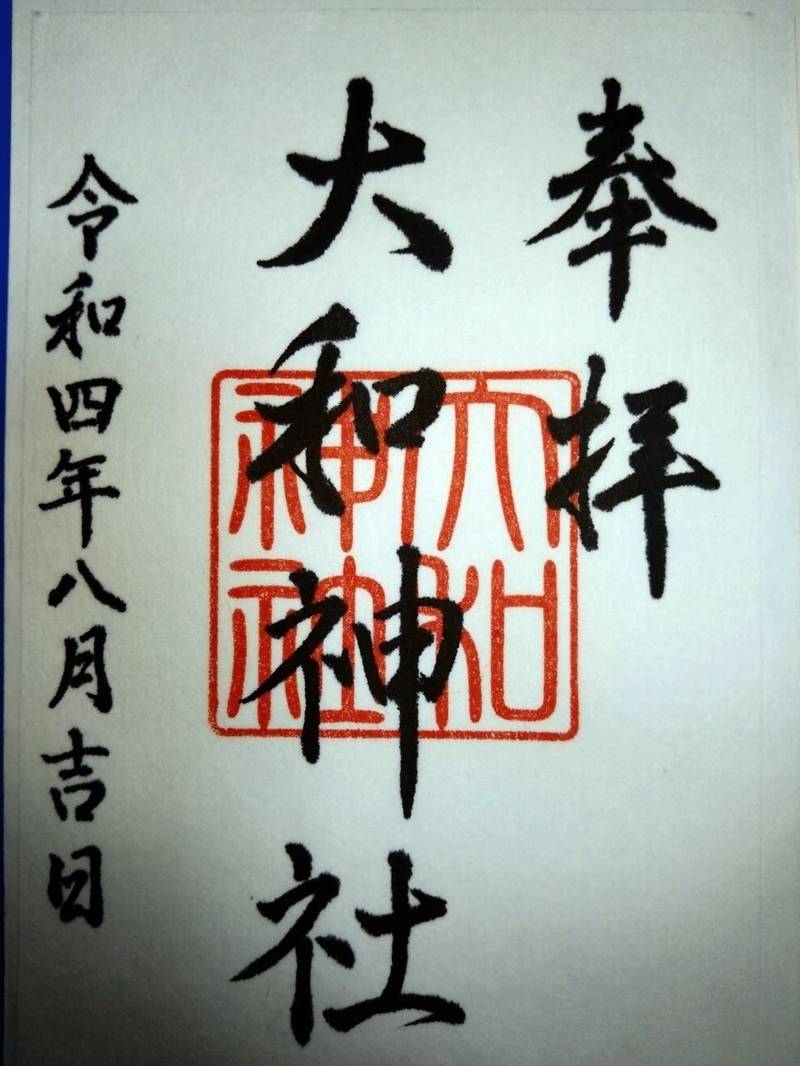 奉拝
大和神社
大和
神社
令和四年八月吉日